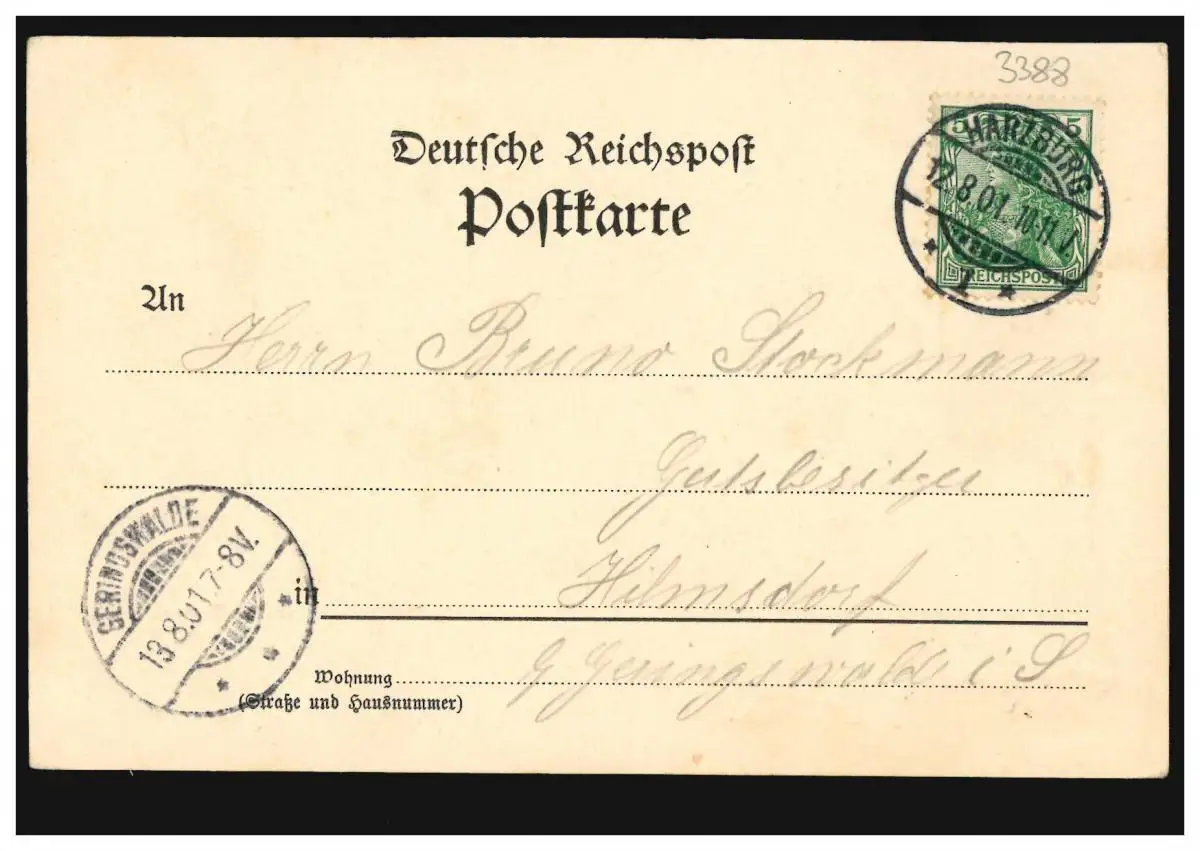 3388
Deutsche Reichspost
Postkarte
5 5
HARZBURG
12.8.01 10-11 V.
* 1 *
REICHSPOST
An
Herrn Bruno Stockmann
Gutsbesitzer
in Hilmsdorf
Wohnung
(Straße und Hausnummer)
b/ Geringswalde i S
GERINGSWALDE
13.8.01.7-8V.
* * *